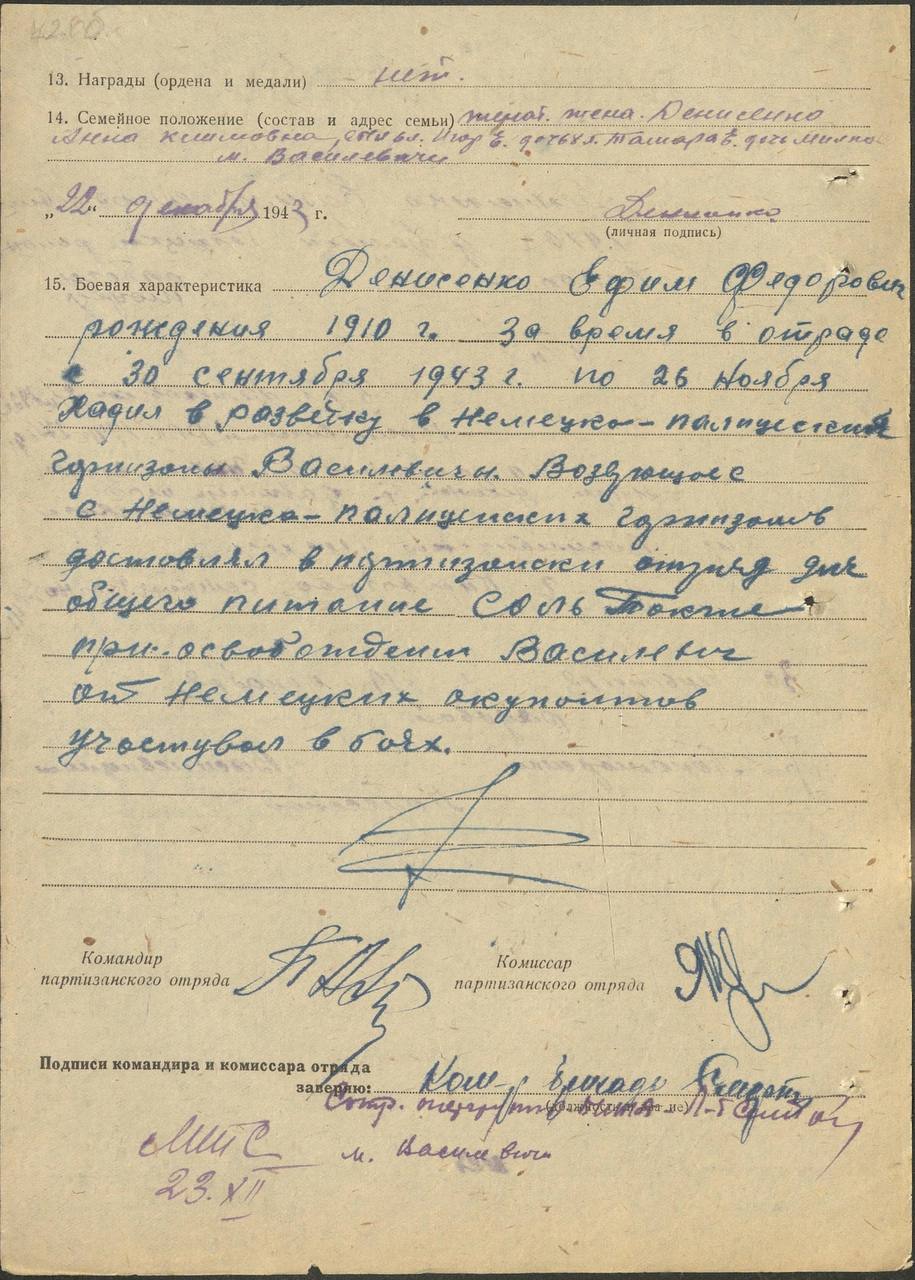 13. Награды (ордена и медали) нет.
14. Семейное положение (состав и адрес семьи) женат. жена. Денисенко
Анна Климовна, Игорь Е. дочь Тамара Е. дочь
м. Василевичи
„22“ декабря 1943 г.
(личная подпись)
15. Боевая характеристика Денисенко Ефим Федорович
рождения 1910 г. За время в отряде
с 30 сентября 1943 г. по 26 ноября
Хадил в разветку в Немецко-палицеский
горнизоны Василевичи. Возвующесе
с Немецко-палицейских горнизонов
достовлял в портизонски отряд для
общего питание СОЛЬ Токже
при освобождении Василевич
от Немецких окупоитов
участувал в боях.
Командир
партизанского отряда
Комиссар
партизанского отряда
Подписи командира и комиссара отряда
заверяю: Ком-р
м. Василевичи
23.XII